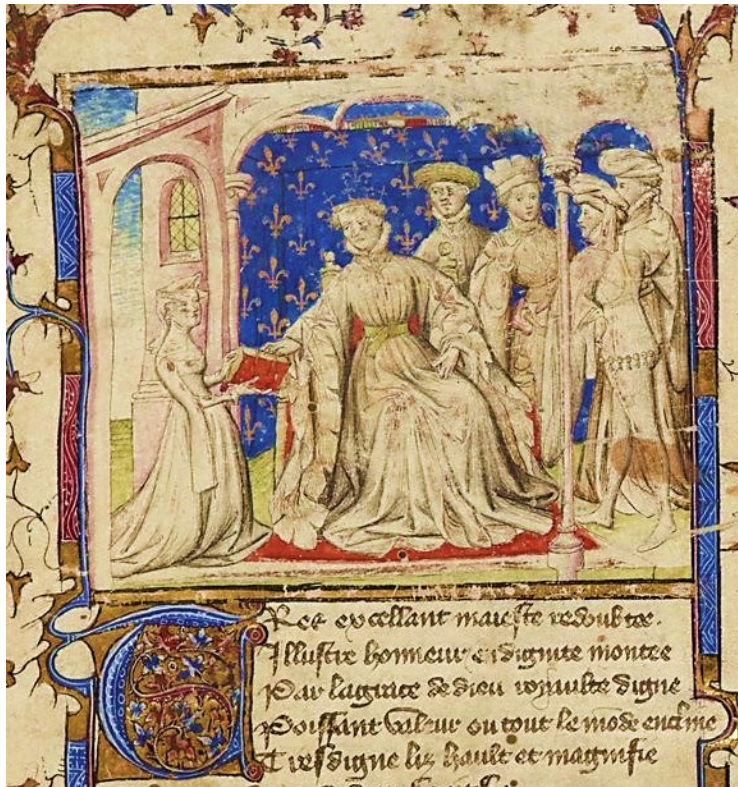 Tres excellant maieste redoubtee.
Illustre honneur en dignite montee
Par la grace de dieu royaulte digne
Poissant valeur ou tout le mõde encline
Tresdigne lis hault et magnifie